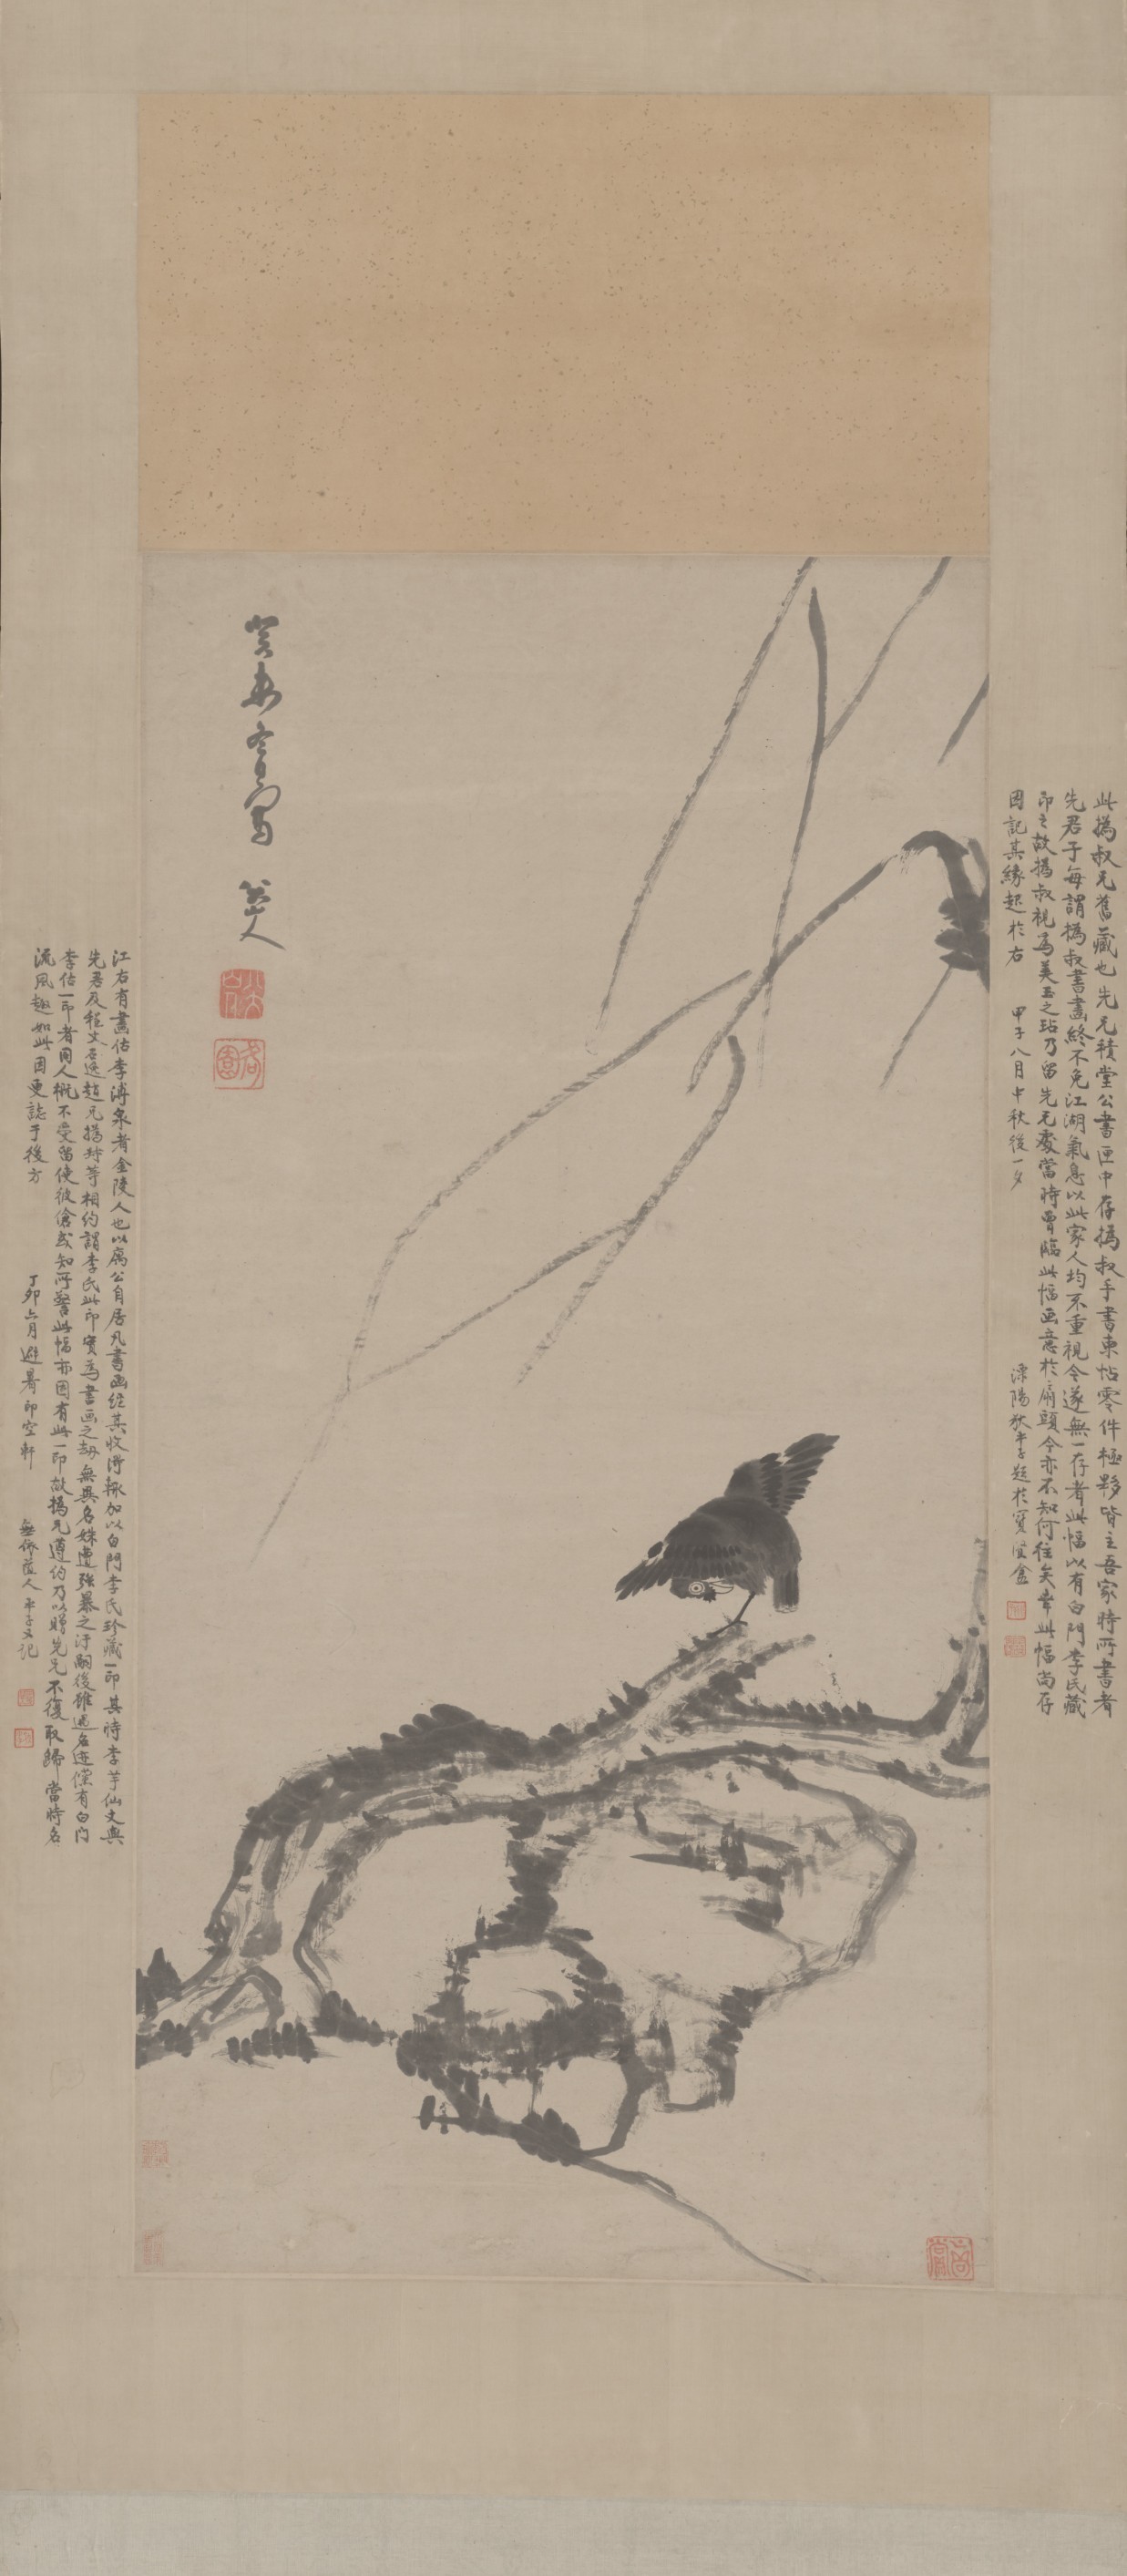 癸未冬日寫
八大山人
此撝叔兄舊藏也先兄積堂公書匣中存撝叔手書柬帖零件極夥皆主吾家時所書者
先君子每謂撝叔書畫終不免江湖氣息以此家人均不重視今遂無一存者此幅以有白門李氏藏
印之故撝叔視為美玉之玷乃留先兄處當時曾臨此幅画意於扇頭今亦不知何往矣幸此幅尚存
因記其緣起於右 甲子八月中秋後一夕 溧陽狄平子題於寶賢盦
江右有畫估李溥泉者金陵人也以廌公自居凡書画經其收得輒加以白門李氏珍藏一印其時李芋仙丈與
先君及程丈 趙兄撝叔等相約謂李氏此印實為書画之劫無異名姝遭強暴之汙嗣後雖遇名迹僅有白门
李估一印者同人概不受留使彼傖或知所警此幅亦因有此一印故撝兄遵約乃以贈先兄不復取歸當時名
流風趣如此因更誌于後方 丁卯六月避暑印空軒 平子又記